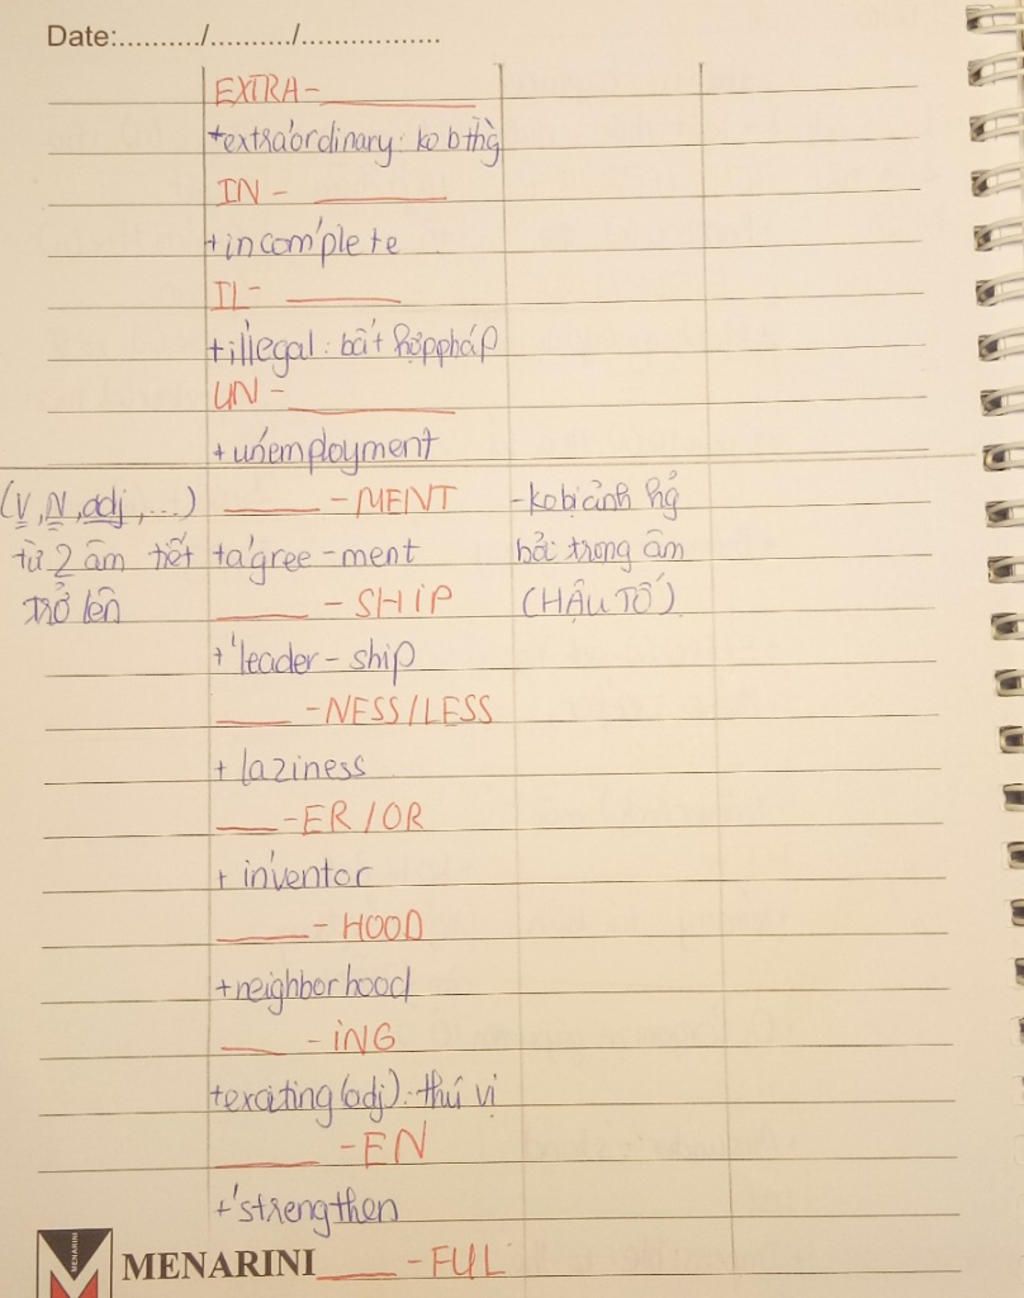 Date:........../........../.................
EXTRA-
+extra'ordinary: ko bthg̀
IN -
+incom'plete
IL-
+il'legal: bất hợp pháp
UN -
+unem'ployment
(V, N, adj, ...) - MENT -ko bị ảnh hg̉
từ 2 âm tiết +a'gree-ment bởi trọng âm
trở lên - SHIP (HẬU TỐ)
+'leader-ship
-NESS/LESS
+ laziness
-ER/OR
+ in'ventor
- HOOD
+neighborhood
- ING
+exciting (adj): thú vị
-EN
+'strengthen
MENARINI
MENARINI -FUL